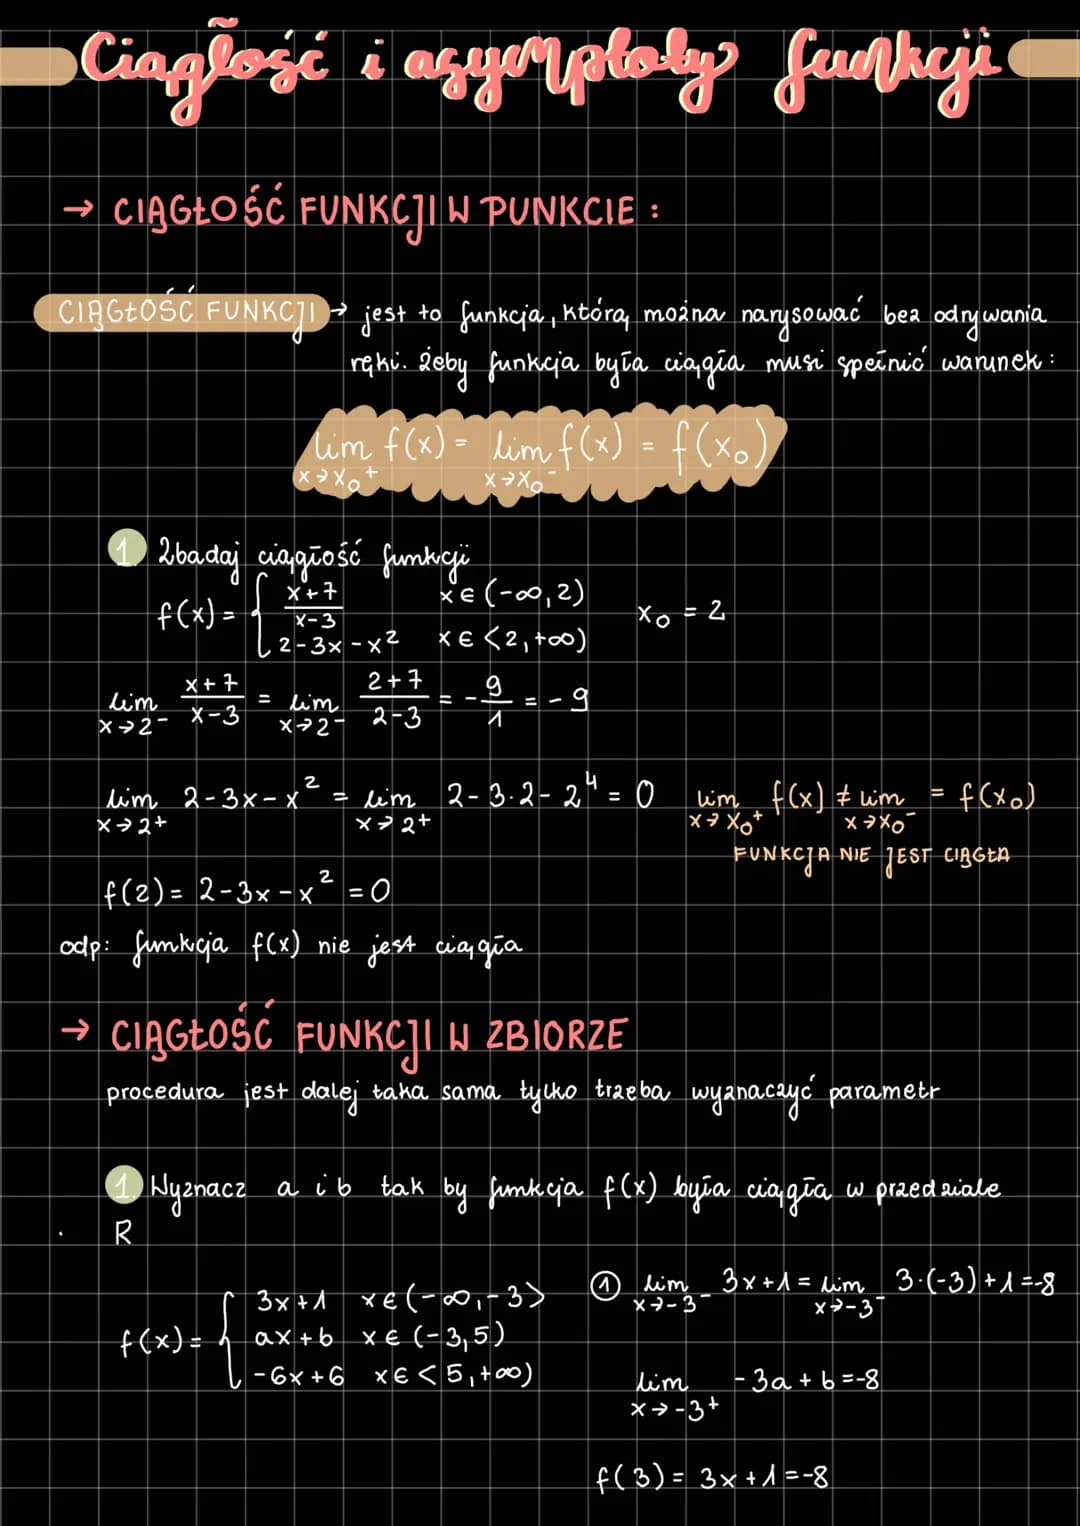 Ciągłość i asymptoty funkcji
→ CIĄGŁOŚĆ FUNKCJI W PUNKCIE :
CIĄGŁOŚĆ FUNKCJI → jest to funkcja, którą można narysować bez odrywania
ręki. żeby funkcja była ciągła musi spełnić warunek :
lim_{x→x₀⁺} f(x) = lim_{x→x₀⁻} f(x) = f(x₀)
1 Zbadaj ciągłość funkcji
f(x) = { (x+7)/(x-3) x ∈ (-∞, 2)
2-3x-x² x ∈ <2, +∞)
x₀ = 2
lim_{x→2⁻} (x+7)/(x-3) = lim_{x→2⁻} (2+7)/(2-3) = -9/1 = -9
lim_{x→2⁺} 2-3x-x² = lim_{x→2⁺} 2-3·2-2⁴ = 0
lim_{x→x₀⁺} f(x) ≠ lim_{x→x₀⁻} = f(x₀)
FUNKCJA NIE JEST CIĄGŁA
f(2) = 2-3x-x² = 0
odp: funkcja f(x) nie jest ciągła
→ CIĄGŁOŚĆ FUNKCJI W ZBIORZE
procedura jest dalej taka sama tylko trzeba wyznaczyć parametr
1. Wyznacz a i b tak by funkcja f(x) była ciągła w przedziale
R
f(x) = { 3x+1 x ∈ (-∞, -3>
ax+b x ∈ (-3, 5)
-6x+6 x ∈ <5, +∞)
① lim_{x→-3⁻} 3x+1 = lim_{x→-3⁻} 3·(-3)+1 = -8
lim_{x→-3⁺} -3a+b = -8
f(3) = 3x+1 = -8